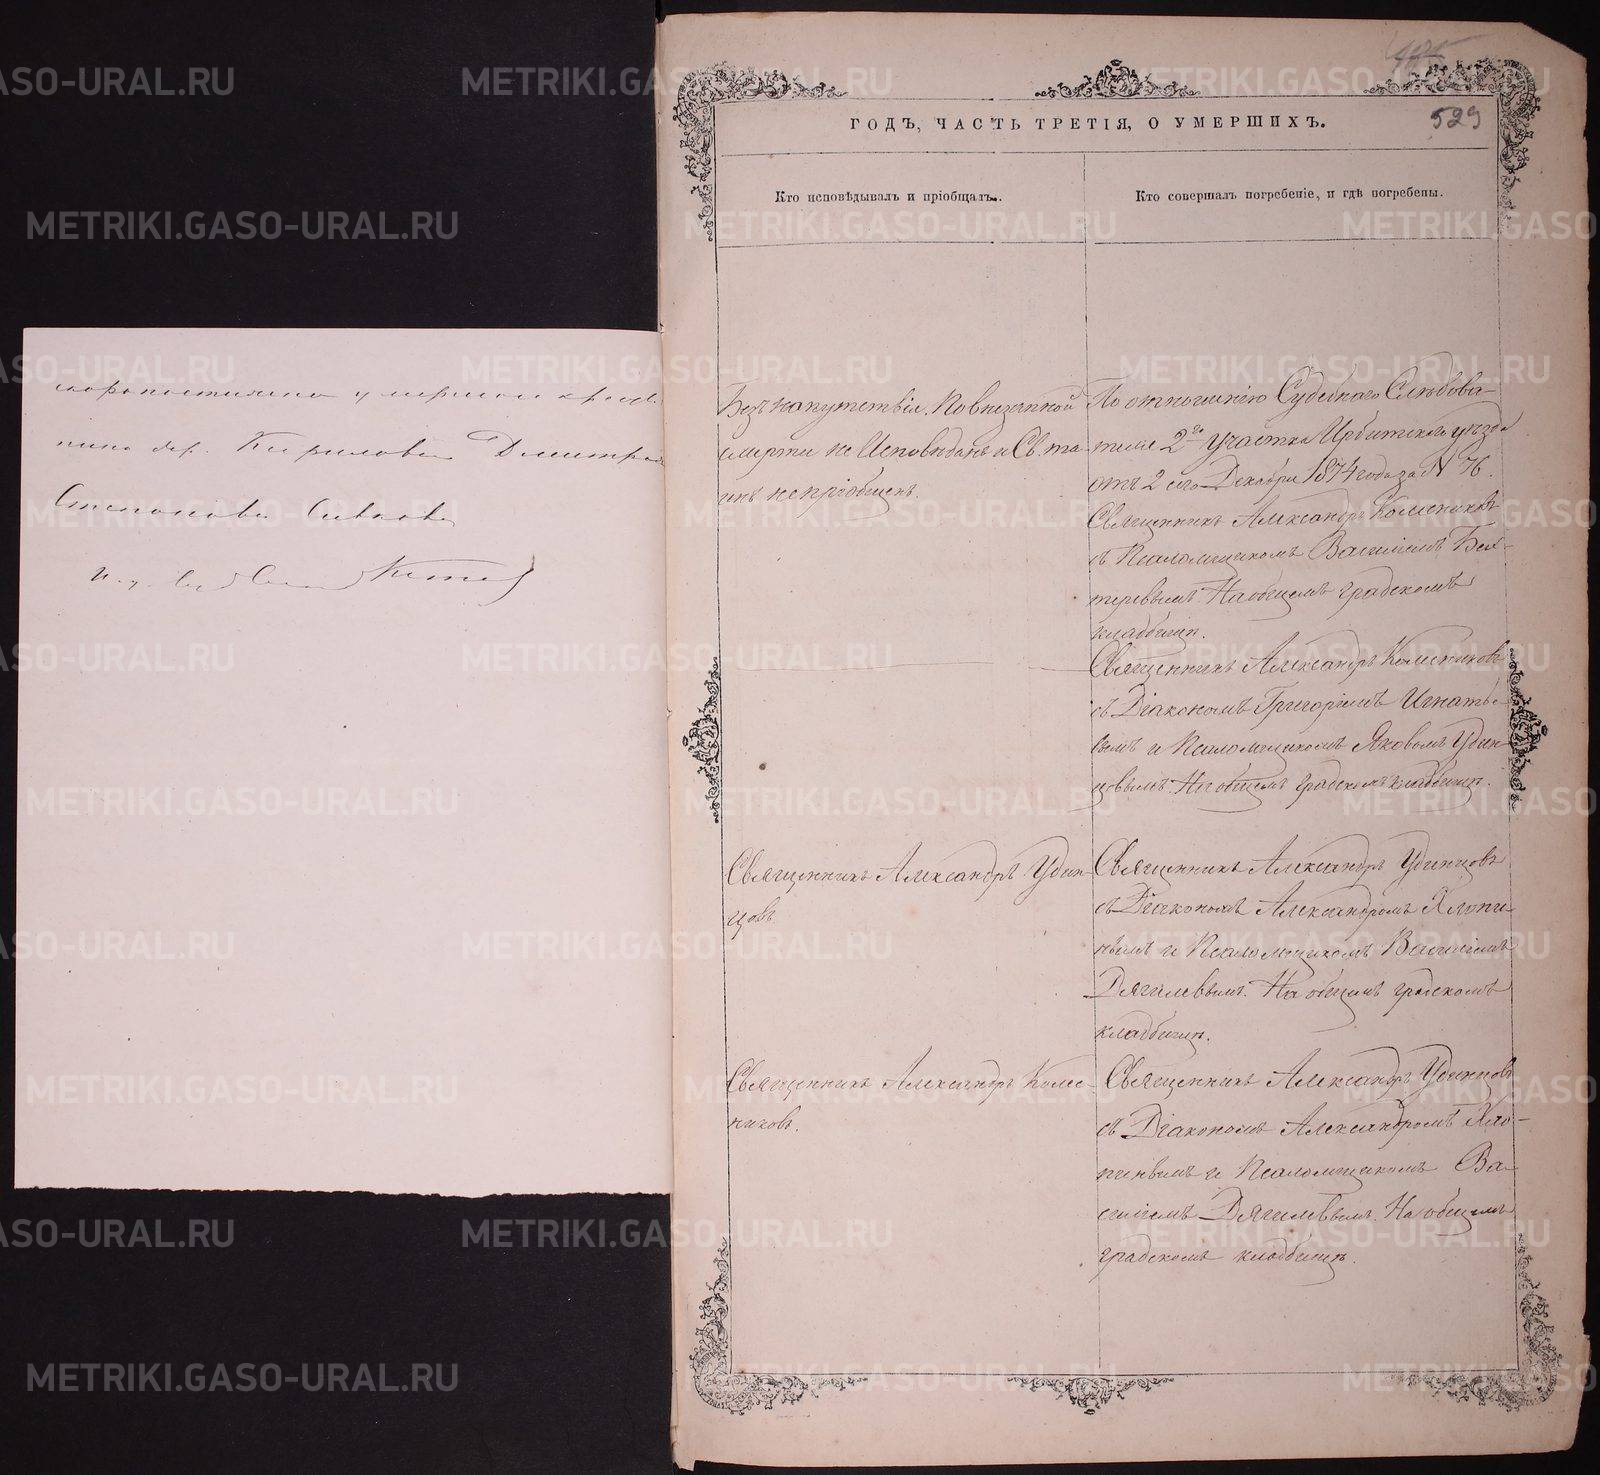 скоропостижно умершаго кресть
Кирилова Дмитрія
Степанова Сивкова
529
ГОДЪ, ЧАСТЬ ТРЕТІЯ, О УМЕРШИХЪ.
Кто исповѣдывалъ и пріобщалъ.
Кто совершалъ погребеніе, и гдѣ погребены.
Безъ напутствія. По внезапной
смерти не Исповѣданъ и Св. та-
инъ не пріобщенъ.
По отношенію Судебнаго Слѣдова-
теля 2го участка Ирбитскаго уѣзда
отъ 2 сего Декабря 1874 года за № 76.
Священникъ Александръ Колесниковъ
съ Псаломщикомъ Василіемъ
На общемъ градскомъ
кладбищѣ.
Священникъ Александръ Колесниковъ
съ Діакономъ Григоріемъ Игнатье-
вымъ и Псаломщикомъ Яковомъ Удин-
цовымъ. На общемъ градскомъ кладбищѣ.
Священникъ Александръ Удин-
цовъ
Священникъ Александръ Удинцовъ
съ Діакономъ Александромъ Хлопи-
нымъ и Псаломщикомъ Василіемъ
Дягилевымъ. На общемъ градскомъ
кладбищѣ.
Священникъ Александръ Колес-
никовъ.
Священникъ Александръ Удинцовъ
съ Діакономъ Александромъ Хло-
пинымъ и Псаломщикомъ Ва-
силіемъ Дягилевымъ. На общемъ
градскомъ кладбищѣ.
METRIKI.GASO-URAL.RU